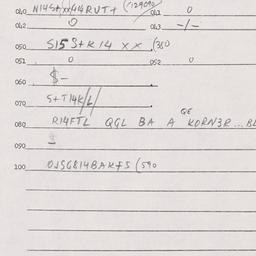 040 N14S+/xx/44 RUT+ (1290%) 041 0
042 0 043 -/-
050 S15 S+K 14 XX (360
051 0 052 0
060 $-
070 S+T14K/L/
GE
080 R14FTL QGL BA A KORN3R...BL
090
100 OJSG814BAKFS (590